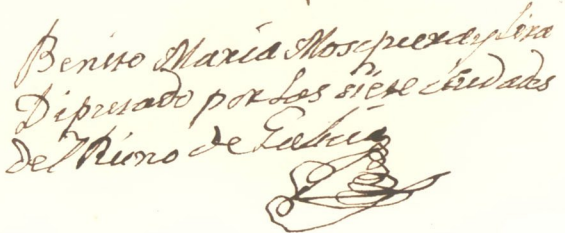 Benito Maria Mosquera y Lira
Diputado por Las siete ciudades
del Reino de Galicia